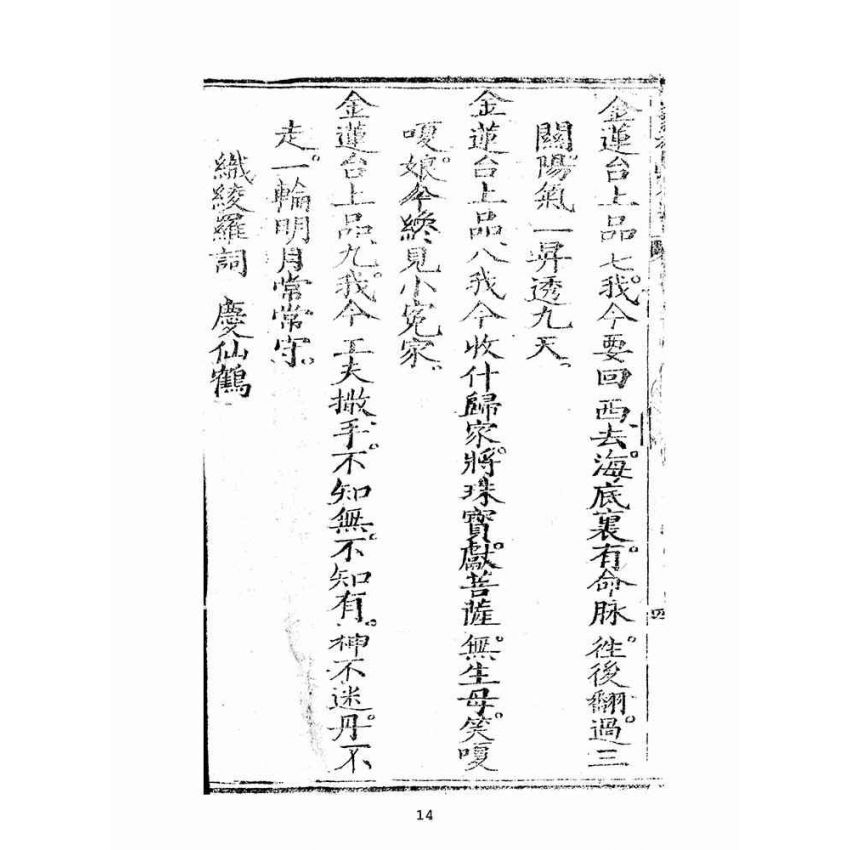 金蓮台上品七我。今要回西去。海底裏有。命脉徃。後翻過。三
關陽氣一昇透九天。
金蓮台上品八我今收什歸家。將珠寶。獻菩薩無。生母笑。嗄
嗄娘。今終見小冤家。
金蓮台上品九。我今工夫撒手。不知無。不知有。神不迷丹。不
走。一輪明月常常守。
織綾羅詞 慶仙鶴
四
14